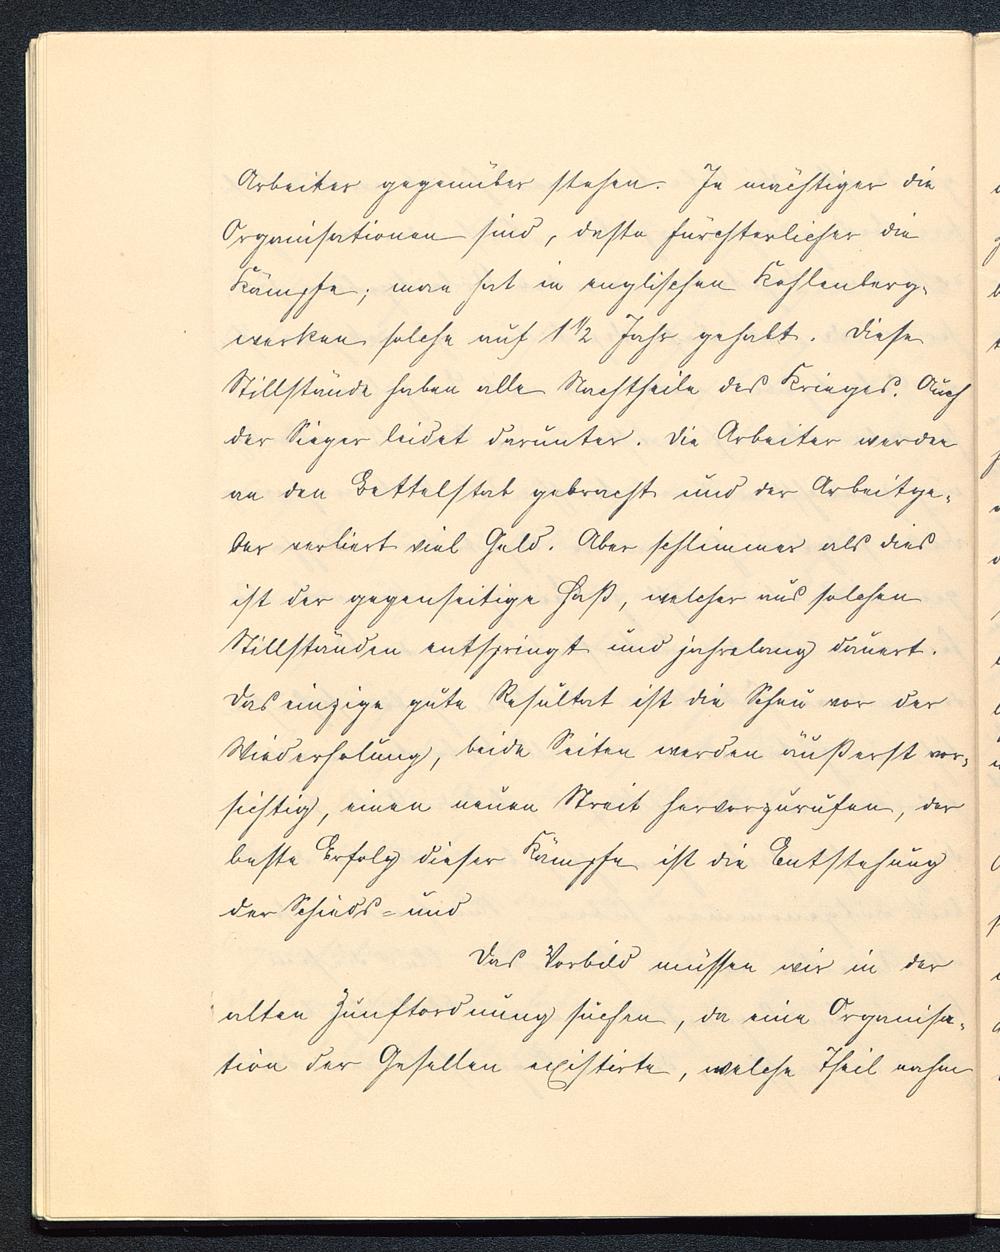 Arbeiter gegenüber stehen. Je mächtiger die
Organisationen sind, desto fürchterlicher die
Kämpfe; man hat in englischen Kohlenberg-
werken solche auf 1½ Jahr gehabt. Diese
Stillstände haben alle Nachtheile des Krieges. Auch
der Sieger leidet darunter. Die Arbeiter werden
an den Bettelstab gebracht und der Arbeitge-
ber verliert viel Geld. Aber schlimmer als dies
ist der gegenseitige Haß, welcher aus solchen
Stillständen entspringt und jahrelang dauert.
Das einzige gute Resultat ist die Scheu vor der
Wiederholung, beide Seiten werden äußerst vor-
sichtig, einen neuen Streit hervorzurufen, der
beste Erfolg dieser Kämpfe ist die Entstehung
der Schieds- und
Das Vorbild müssen wir in der
alten Zunftordnung suchen, da eine Organisa-
tion der Gesellen existirte, welche Theil nahm